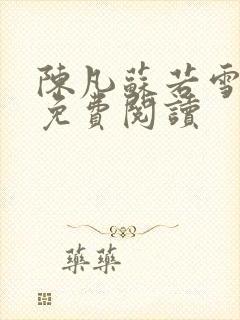 陳凡蘇若雪
免費閱讀
藥藥